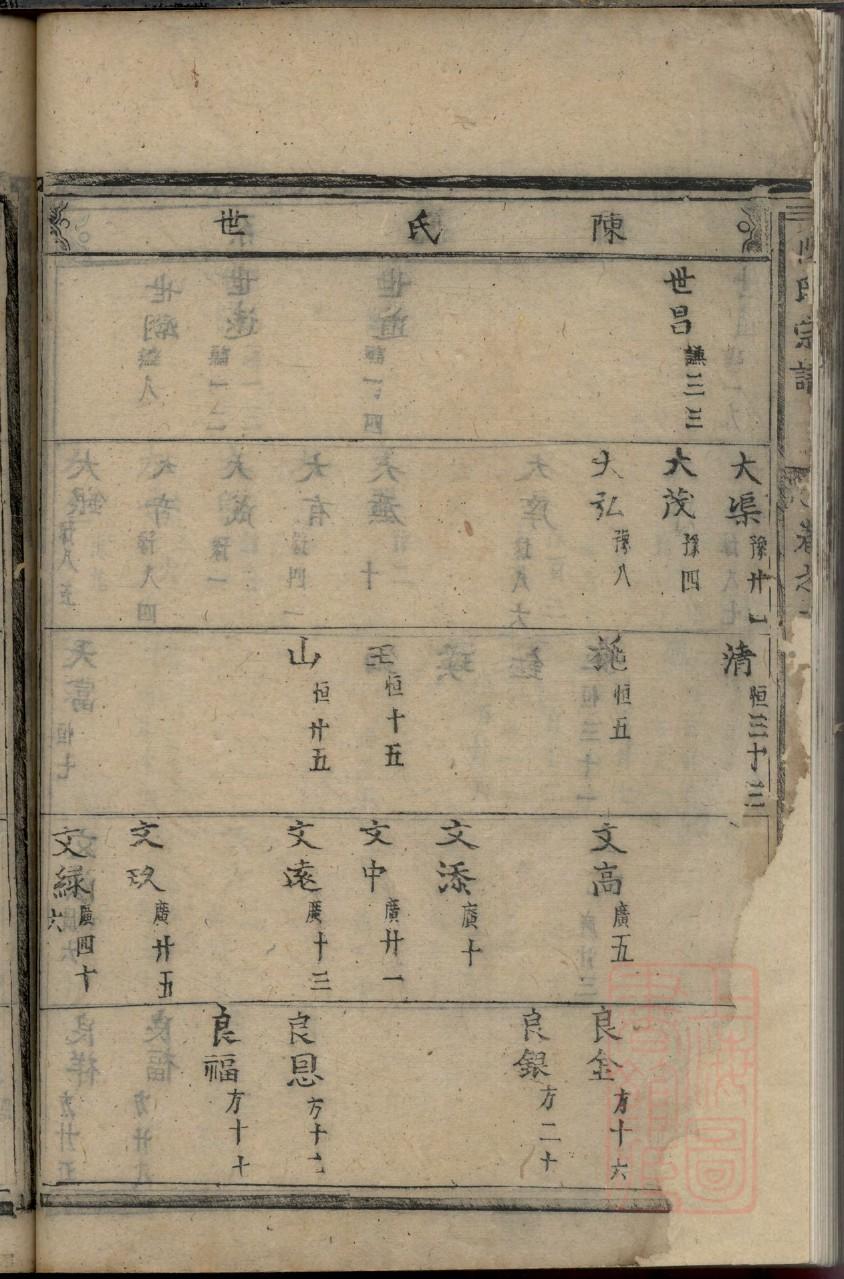 陳氏世
世昌 謙三三
大渠 豫廿一
大茂 豫四
大弘 豫八
清 恒三十三
恒五
王 恒十五
山 恒廿五
文高 廣五
文添 廣十
文中 廣廿一
文遠 廣十三
文玖 廣廿五
文緑 廣四十六
良金 方十六
良銀 方二十
良恩 方十
良福 方十十
氏宗譜
卷之